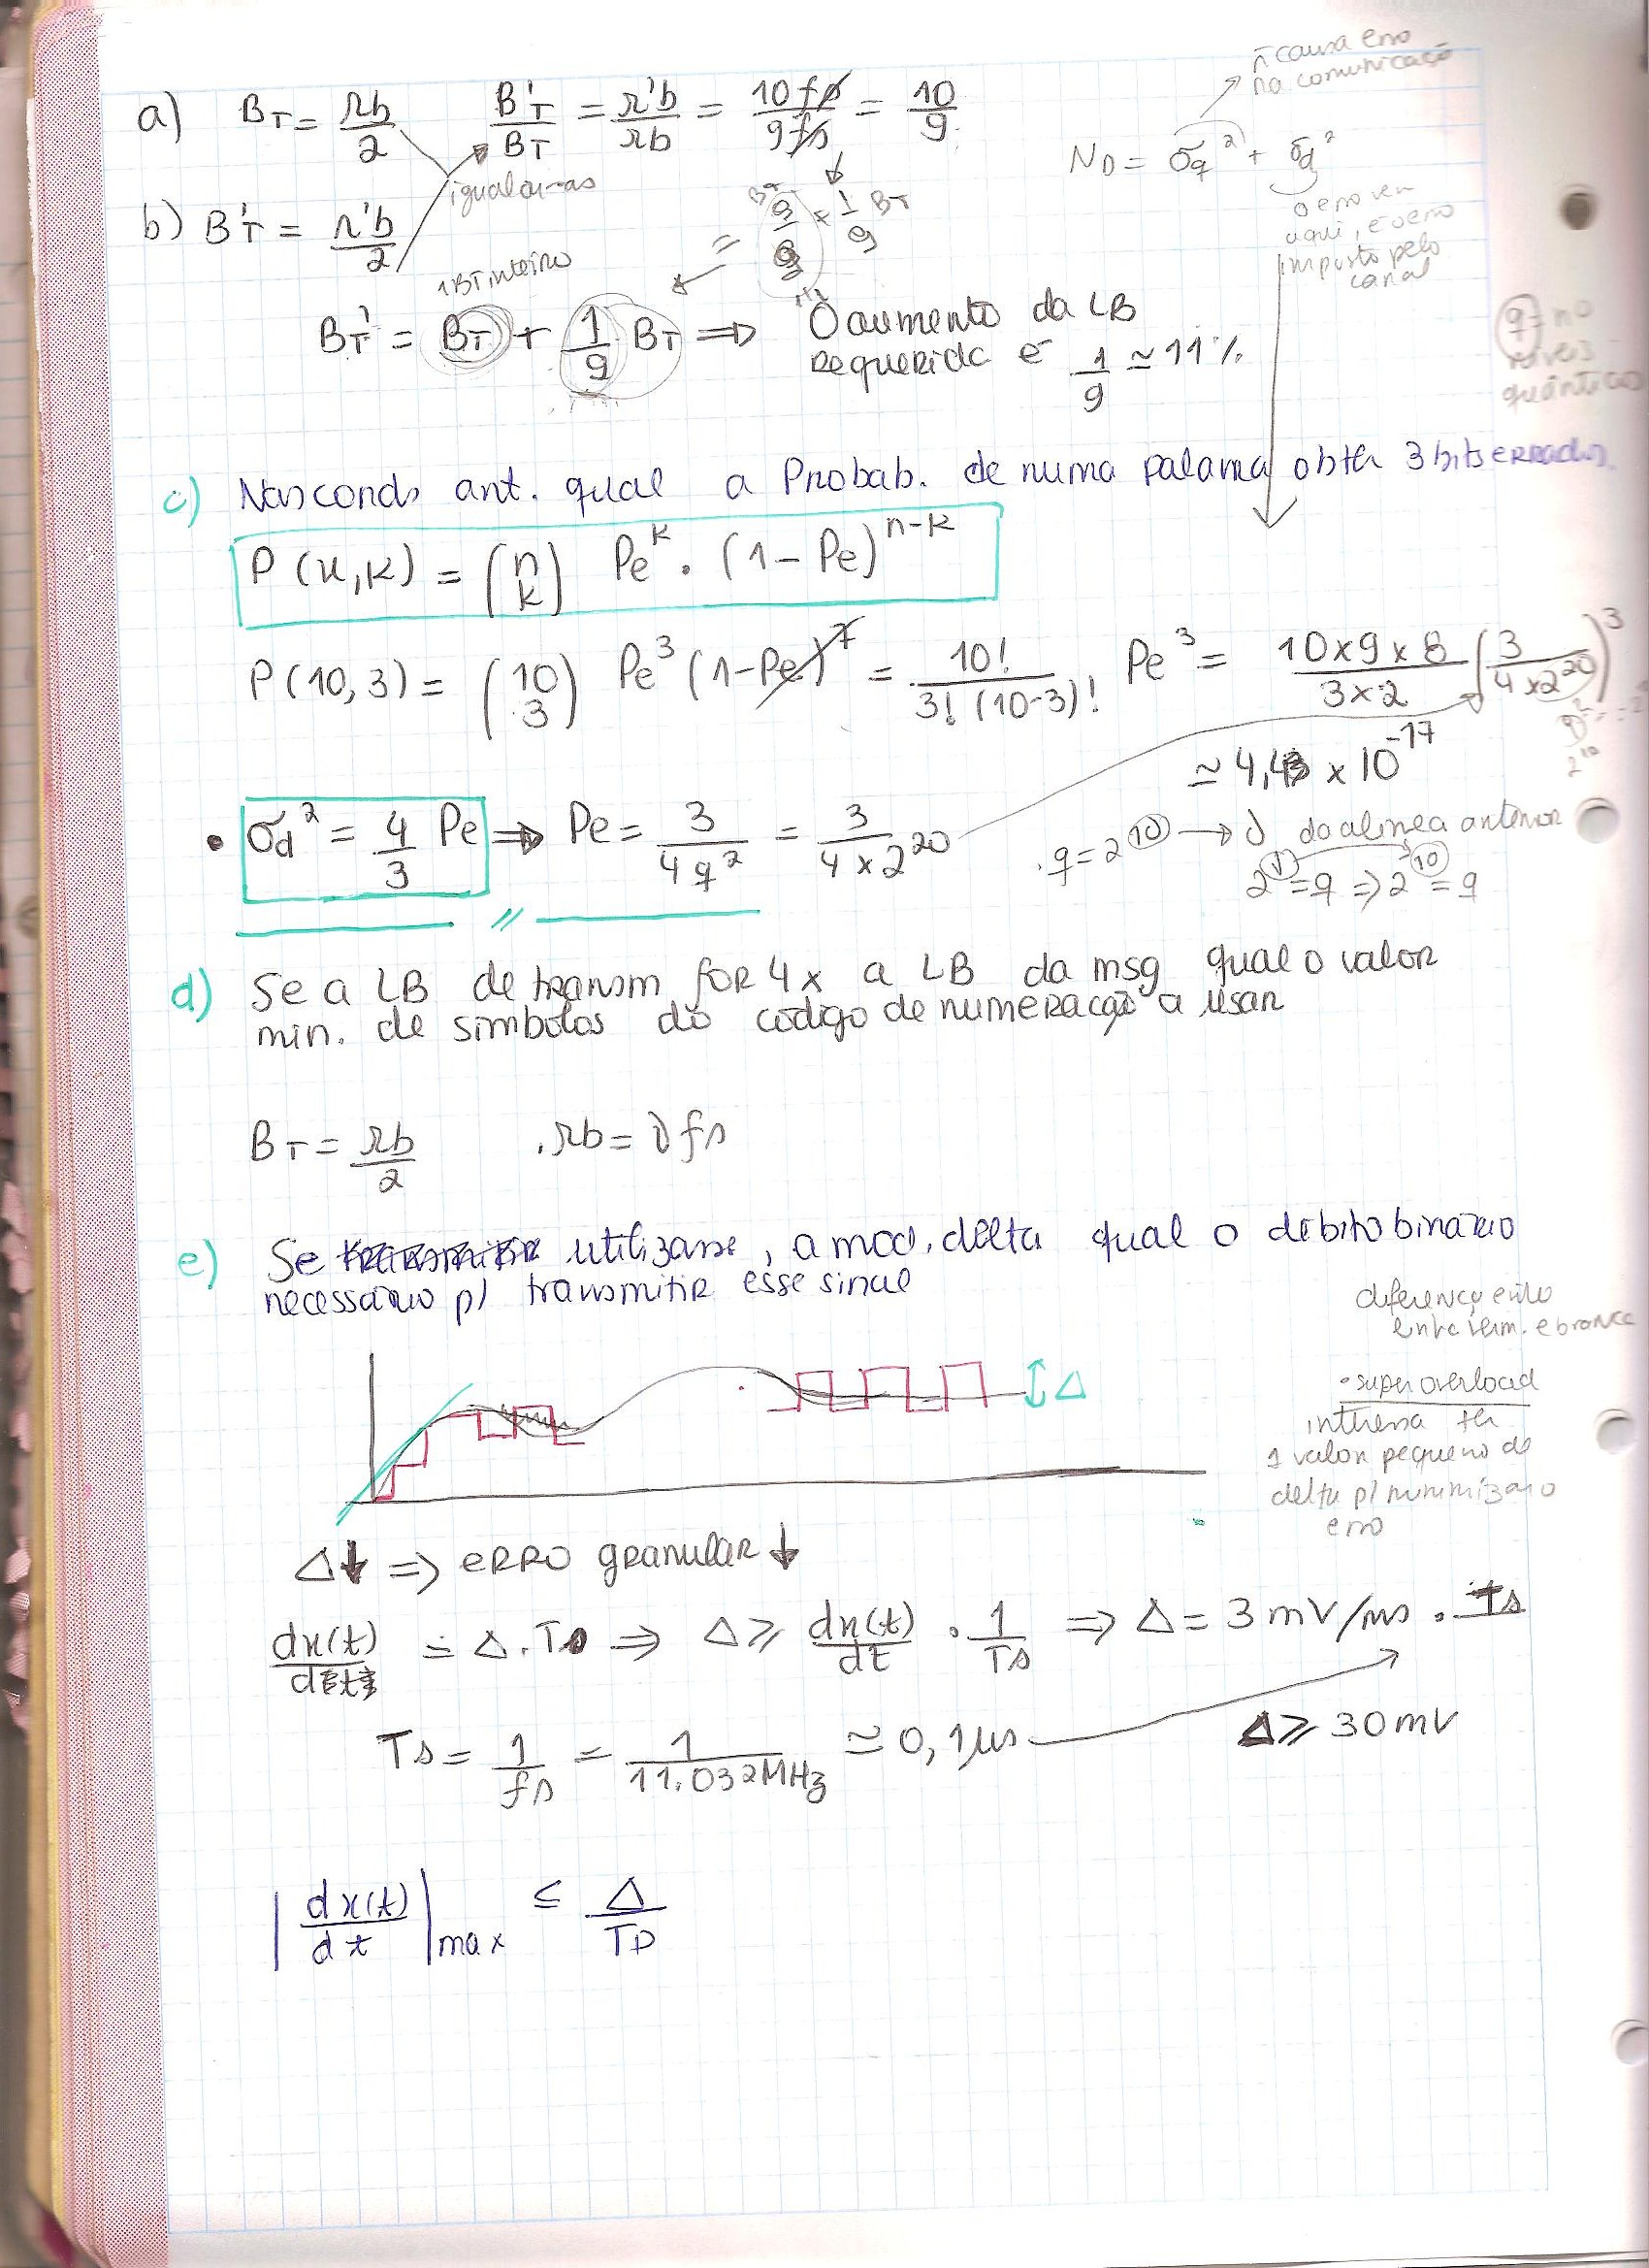 a) BT = rb/2   B'T/BT = r'b/rb = 10fs/9fs = 10/9
ñ causa erro
na comunicação
ND = σq² + σd²
igualar-as
o erro vem
aqui, é o erro
imposto pelo
canal
b) B'T = r'b/2
= 9/9 BT + 1/9 BT
1BT inteiro
B'T = BT + 1/9 BT => O aumento da LB
requerida é 1/9 ≃ 11%
q → nº
níveis
quânticos
c) Nas conds ant. qual a Probab. de numa palavra obter 3 bits errados.
P(n,k) = (n k) Pe^k . (1-Pe)^n-k
P(10,3) = (10 3) Pe³ (1-Pe)^7 = 10!/3!(10-3)! Pe³ = 10x9x8/3x2 (3/4x2^20)³
≃ 4,43 x 10^-17
• σd² = 4/3 Pe => Pe = 3/4q² = 3/4x2^20
.q = 2^10 → ν da alínea anterior
2^ν = q => 2^10 = q
d) Se a LB de transm for 4x a LB da msg qual o valor
min. de símbolos do código de numeração a usar
BT = rb/2   .rb = νfs
e) Se transmitir utilizasse, a mod. delta qual o débito binário
necessário p/ transmitir esse sinal
Δ
• super overload
interessa ter
1 valor pequeno de
delta p/ minimizar o
erro
Δ↓ => erro granular↓
dx(t)/dt = Δ.Ts => Δ ≥ dx(t)/dt . 1/Ts => Δ = 3mV/ns . Ts
Ts = 1/fs = 1/11.032MHz ≃ 0,1μs
Δ ≥ 30mV
|dx(t)/dt|max ≤ Δ/Ts